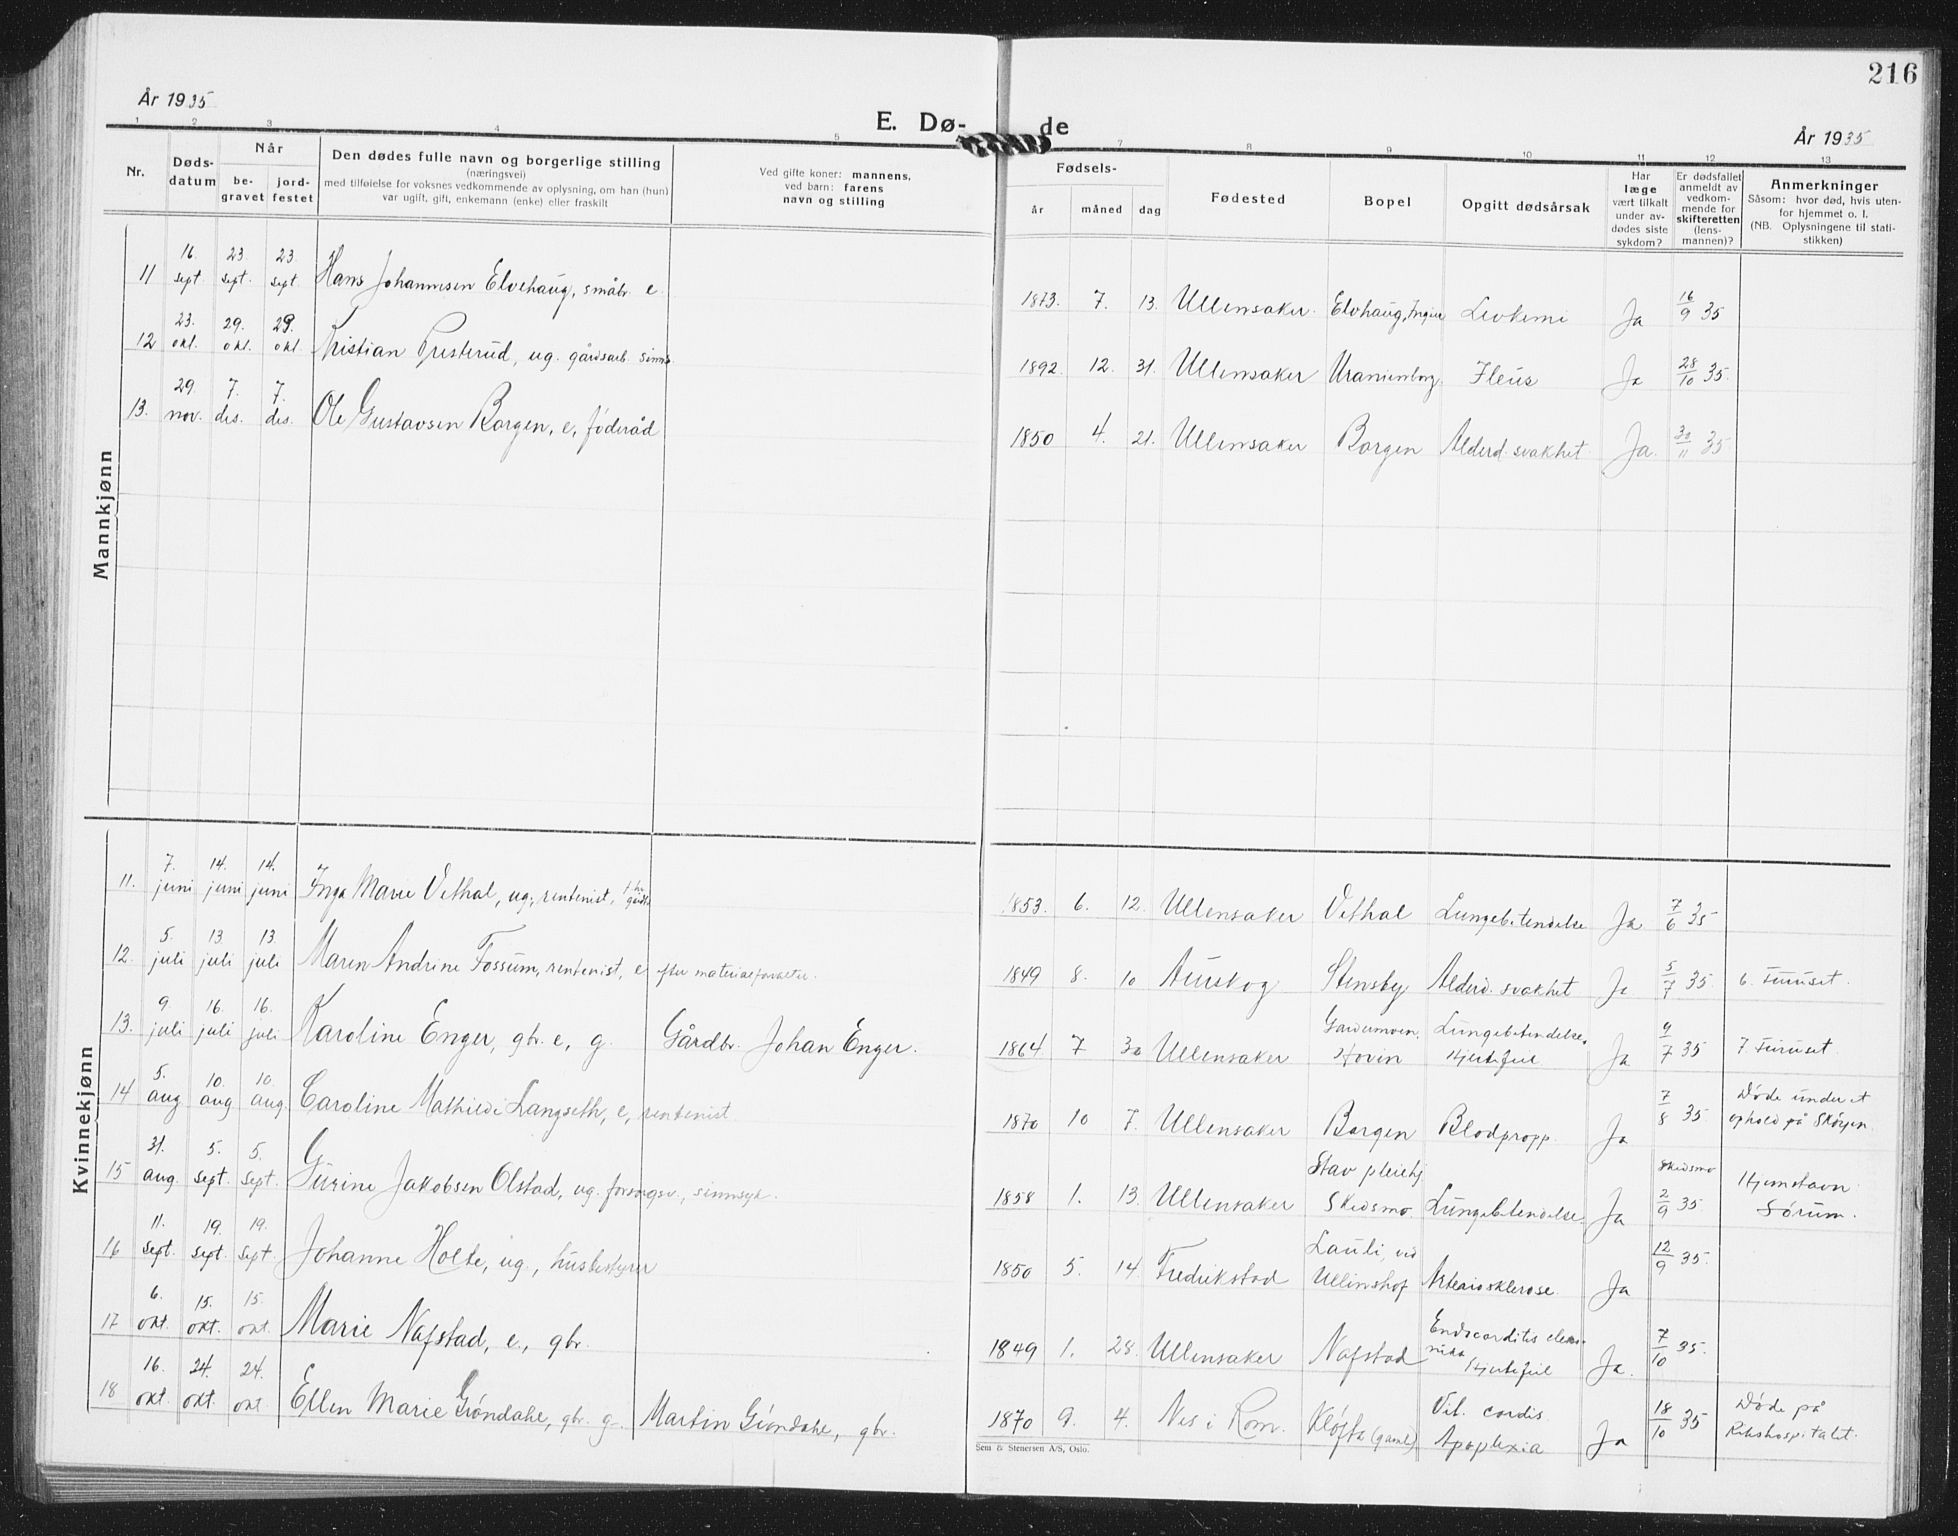 216
År 1935
E. Dø- de
År 1935
1 2 3 4 5 7 8 9 10 11 12 13
Nr.
Døds-
datum
Når
be-
gravet
jord-
festet
Den dødes fulle navn og borgerlige stilling
(næringsvei)
med tilføielse for voksnes vedkommende av oplysning, om han (hun)
var ugift, gift, enkemann (enke) eller fraskilt
Ved gifte koner: mannens,
ved barn: farens
navn og stilling
Fødsels-
år måned dag
Fødested
Bopel
Opgitt dødsårsak
Har
læge
vært tilkalt
under av-
dødes siste
sykdom?
Er dødsfallet
anmeldt av
vedkom-
mende for
skifteretten
(lens-
mannen)?
Anmerkninger
Såsom: hvor død, hvis uten-
for hjemmet o. l.
(NB. Oplysningene til stati-
stikken)
Mannkjønn
11 16. sept. 23. sept. 23. sept. Hans Johannesen Elvehaug, småbr. e. 1873. 7. 13. Ullensaker. Elvhaug, Ingier Levkemi Ja 16/9 35
12 23. okt. 29. okt. 29. okt. Kristian Presterud, ug. gårdsarb. sinns 1892. 12. 31. Ullensaker Uranienborg. Ileus Ja 28/10 35.
13. 29 nov. 7. des. 7. des. Ole Gustavsen Borgen, e, føderåd 1850 4. 21. Ullensaker Borgen Alderd. svakhet Ja. 30/11 35
Kvinnekjønn
11. 7. juni 14. juni 14. juni Inga Marie Vethal, ug., rentenist, 1853. 6. 12. Ullensaker Vethal Lungebetendelse Ja 7/6 35
12. 5. juli 13. juli 13. juli Maren Andrine Fossum, rentenist, e efter materialforvalter. 1849 8. 10 Aurskog Stensby Alderd. svakhet Ja 5/7 35. 6. Furuset.
13. 9 juli 16. juli 16. juli Karoline Enger, gbr. e, g. Gårdbr. Johan Enger. 1864 7 30 Ullensaker Gardermoen, Hovin Lungebetendelse, Hjertefeil Ja 9/7 35 7. Furuset.
14 5. aug 10. aug 10. aug. Caroline Mathilde Langseth, e, rentenist 1870 10 7. Ullensaker Borgen Blodpropp. Ja 7/8 35 Døde under et ophold på Skøyen
15 31. aug. 5. sept. 5. sept. Gurine Jakobsen Olstad, ug. forsørgsv., sinnsyk. 1858 1. 13. Ullensaker Stav pleiehj Skedsmo. Lungebetendelse. Ja Skedsmo 2/9 35 Hjemstavn Sørum.
16 11. sept. 19. sept. 19. sept. Johanne Holte, ug., husbestyrer 1850 5. 14. Fredrikstad Lauli, ved Ullinshof Arteriosklerose. Ja 12/9 35.
17 6. okt. 15. okt. 15. okt. Marie Nafstad, e., gbr. 1849 1. 28. Ullensaker Nafstad Endocarditis Hjertefeil Ja. 7/10 35.
18 16. okt. 24. okt. 24. okt. Ellen Marie Grøndahl, gbr. g. Martin Grøndahl, gbr. 1870 9. 4. Nes i Rom. Kløfta (gaml) Vit. cordis Apoplexia Ja 18/10 35 Døde på Rikshospitalet.
Sem & Stenersen A/S, Oslo.